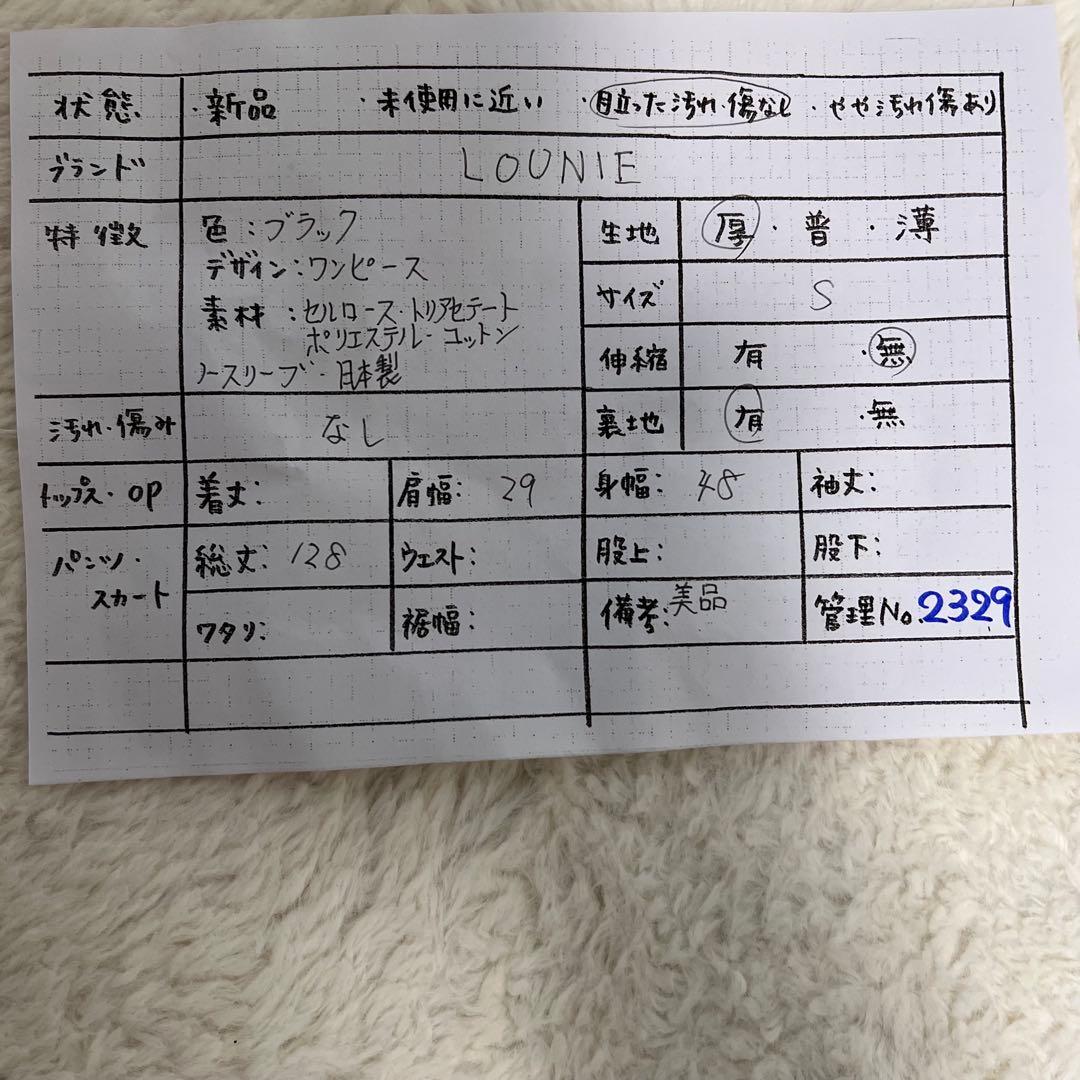 状態 ・新品 ・未使用に近い ・目立った汚れ・傷なし ・やや汚れ傷あり
ブランド LOUNIE
特徴 色：ブラック
デザイン：ワンピース
素材：セルロース・トリアセテート
ポリエステル・コットン
ノースリーブ・日本製
生地 厚・普・薄
サイズ S
伸縮 有 ・無
汚れ・傷み なし
裏地 有 ・無
トップス・OP 着丈： 肩幅：29 身幅：48 袖丈：
パンツ・スカート 総丈：128 ウェスト： 股上： 股下：
ワタリ： 裾幅： 備考：美品 管理No.2329